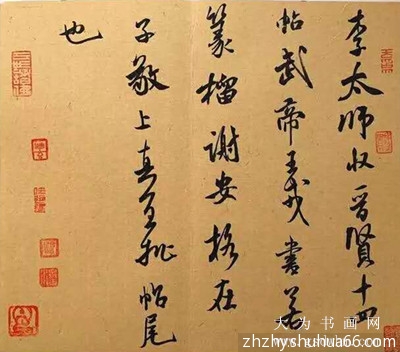 李太師收晉賢十四
帖武帝王戎書若
篆籀謝安格在
子敬上真宜批帖尾
也
大为书画网
zhzhyshuhua66.com